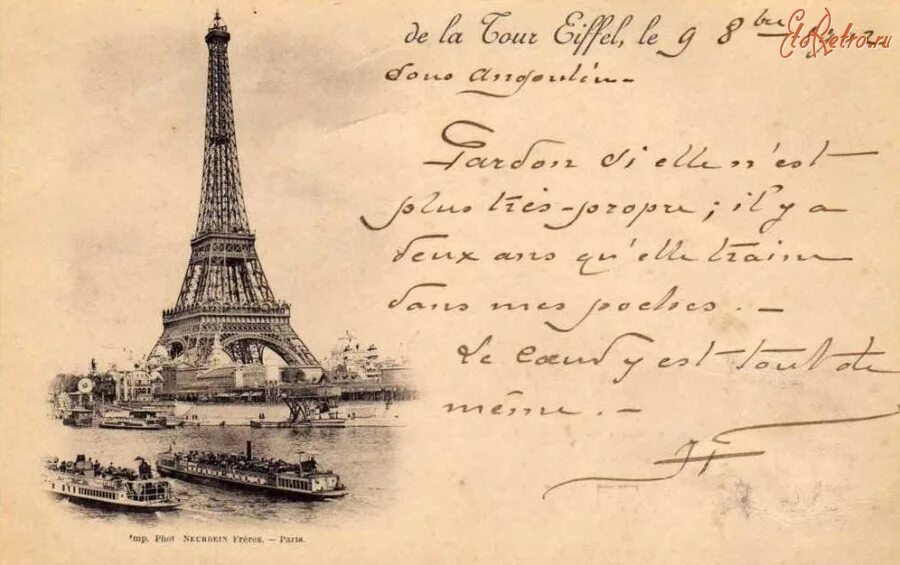 de la Tour Eiffel, le 9 8bre
EtoRetro.ru
Pardon si elle n'est
plus très-propre ; il y a
deux ans qu'elle traine
dans mes poches. —
Le Cœur y est tout de
même. —
Imp. Phot NEURDEIN Frères. — Paris.